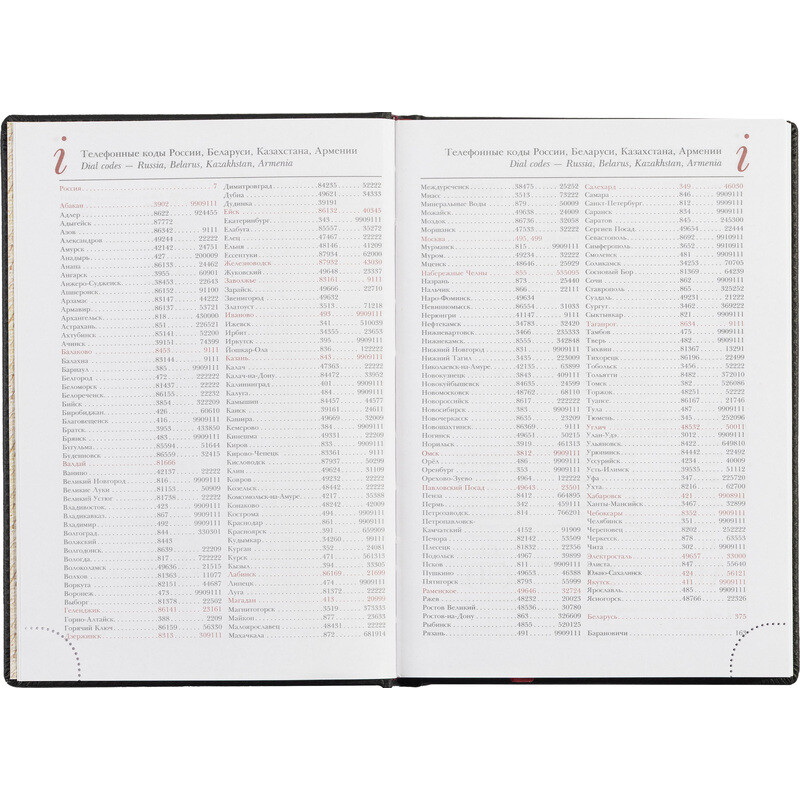 i
Телефонные коды России, Беларуси, Казахстана, Армении
Dial codes — Russia, Belarus, Kazakhstan, Armenia
Россия 7
Абакан 3902 9909111
Адлер 8622 924455
Адыгейск 87772
Азов 86342 9111
Александров 49244 22222
Амурск 42142 24751
Анадырь 427 200009
Анапа 86133 24462
Ангарск 3955 60901
Анжеро-Судженск 38453 22643
Апшеронск 86152 91100
Арзамас 83147 44222
Армавир 86137 53721
Архангельск 818 430000
Астрахань 851 226521
Ахтубинск 85141 52200
Ачинск 39151 74399
Балаково 8453 9111
Балахна 83144 9111
Барнаул 385 9909111
Белгород 472 222222
Беломорск 81437 22222
Белореченск 86155 22232
Бийск 3854 322209
Биробиджан 426 60610
Благовещенск 416 9909111
Братск 3953 433850
Брянск 483 9909111
Бугульма 85594 51644
Буденновск 86559 32415
Валдай 81666
Ванино 42137 22222
Великий Новгород 816 9909111
Великие Луки 81153 50909
Великий Устюг 81738 22222
Владивосток 423 9909111
Владикавказ 867 9909111
Владимир 492 9909111
Волгоград 844 330301
Волжский 8443
Волгодонск 8639 22209
Вологда 817 722222
Волоколамск 49636 21515
Волхов 81363 11077
Воркута 82151 44687
Воронеж 473 9909111
Выборг 81378 22502
Геленджик 86141 23161
Горно-Алтайск 388 2209
Горячий Ключ 86159 56330
Дзержинск 8313 309111
Димитровград 84235 52222
Дубна 49621 54333
Дудинка 39191
Ейск 86132 40345
Екатеринбург 343 9909111
Елабуга 85557 35272
Елец 47467 22222
Ельня 48146 41209
Ессентуки 87934 62000
Железноводск 87932 43030
Жуковский 49648 23337
Заволжье 83161 9111
Зарайск 49666 22710
Звенигород 49632
Златоуст 3513 71218
Иваново 493 9909111
Ижевск 341 510039
Ирбит 34355 23653
Иркутск 395 9909111
Йошкар-Ола 836 122222
Казань 843 9909111
Калач 47363 22222
Калач-на-Дону 84472 33952
Калининград 401 9909111
Калуга 484 9909111
Камышин 84457 44577
Канск 39161 24611
Кашира 49669 32009
Кемерово 384 9909111
Кинешма 49331 22209
Киров 833 9909111
Кирово-Чепецк 83361 9111
Кисловодск 87937 50299
Клин 49624 31109
Ковров 49232 22222
Козельск 48442 22222
Комсомольск-на-Амуре 4217 35388
Конаково 48242 42009
Кострома 494 9909111
Краснодар 861 9909111
Красноярск 391 659909
Кудымкар 34260 99111
Курган 352 24081
Курск 471 561313
Кызыл 394 33305
Лабинск 86169 21699
Липецк 474 9909111
Луга 81372 22222
Магадан 413 20990
Магнитогорск 3519 373333
Майкоп 877 23653
Малоярославец 48431 22222
Махачкала 872 681914
i
Телефонные коды России, Беларуси, Казахстана, Армении
Dial codes — Russia, Belarus, Kazakhstan, Armenia
Междуреченск 38475 25252
Миасс 3513 73222
Минеральные Воды 879 50009
Можайск 49638 24009
Моздок 86736 32028
Моршанск 47533 22222
Москва 495, 499
Мурманск 815 9909111
Муром 49234 32222
Мценск 48646 25929
Набережные Челны 855 535005
Назрань 873 25440
Нальчик 866 22111
Наро-Фоминск 49634
Невинномысск 86554 31033
Нерюнгри 41147 9111
Нефтекамск 34783 32420
Нижневартовск 3466 235333
Нижнекамск 8555 342848
Нижний Новгород 831 9909111
Нижний Тагил 3435 223009
Николаевск-на-Амуре 42135 63899
Новокузнецк 3843 9909111
Новокуйбышевск 84635 24599
Новомосковск 48762 68110
Новороссийск 8617 222222
Новосибирск 383 9909111
Новочеркасск 8635 23209
Новошахтинск 86369 9111
Ногинск 49651 50215
Норильск 3919 461313
Омск 3812 9909111
Орёл 486 9909111
Оренбург 353 9909111
Орехово-Зуево 4964 122222
Павловский Посад 49643 23501
Пенза 8412 664895
Пермь 342 459111
Петрозаводск 814 766201
Петропавловск-
Камчатский 4152 91909
Печора 82142 53509
Плесецк 81832 22356
Подольск 4967 39899
Псков 811 9909111
Пушкино 49653 46388
Пятигорск 8793 55999
Раменское 49646 32724
Ржев 48232 20023
Ростов Великий 48536 30780
Ростов-на-Дону 863 326609
Рыбинск 4855 520125
Рязань 491 9909111
Салехард 349 46030
Самара 846 9909111
Санкт-Петербург 812 9909111
Саранск 834 9909111
Саратов 845 245300
Сергиев Посад 49654 22444
Севастополь 8692 9910911
Симферополь 3652 9910911
Смоленск 481 9909111
Соликамск 34253 70705
Сосновый Бор 81369 64239
Сочи 862 9909111
Ставрополь 865 325252
Суздаль 49231 21222
Сургут 3462 369222
Сыктывкар 821 9909111
Таганрог 8634 9111
Тамбов 475 9909111
Тверь 482 9909111
Тихвин 81367 13291
Тихорецк 86196 22409
Тобольск 3456 52222
Тольятти 8482 372010
Томск 382 526086
Торжок 48251 52222
Туапсе 86167 21746
Тула 487 9909111
Тюмень 345 252096
Углич 48532 50011
Улан-Удэ 3012 9909111
Ульяновск 8422 649810
Урюпинск 84442 22492
Уссурийск 4234 40009
Усть-Илимск 39535 51112
Уфа 347 225720
Ухта 8216 62700
Хабаровск 421 9908911
Ханты-Мансийск 3467 32899
Чебоксары 8352 9909111
Челябинск 351 9909111
Череповец 8202 252222
Черкесск 878 63553
Чита 302 9909111
Электросталь 49657 33000
Элиста 847 55640
Южно-Сахалинск 424 56121
Якутск 411 9909111
Ярославль 485 9909111
Ясногорск 48766 22326
Беларусь 375
Барановичи 163